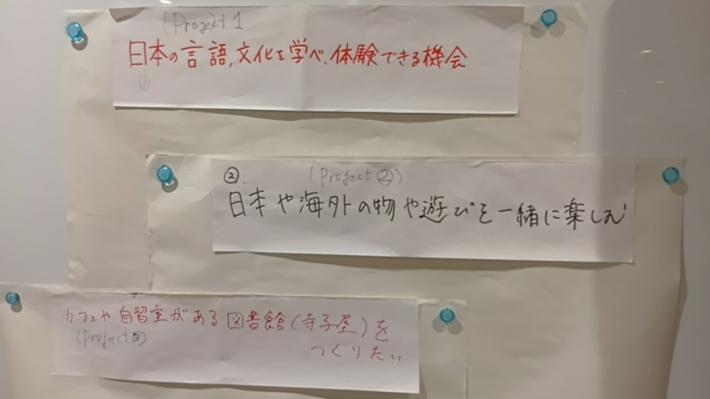 (Projekt 1
日本の言語,文化を学べ,体験できる機会
②.
(Project②)
日本や海外の物や遊びを一緒に楽しむ
カフェや自習室がある図書館(寺子屋)を
つくりたい
(Project③)